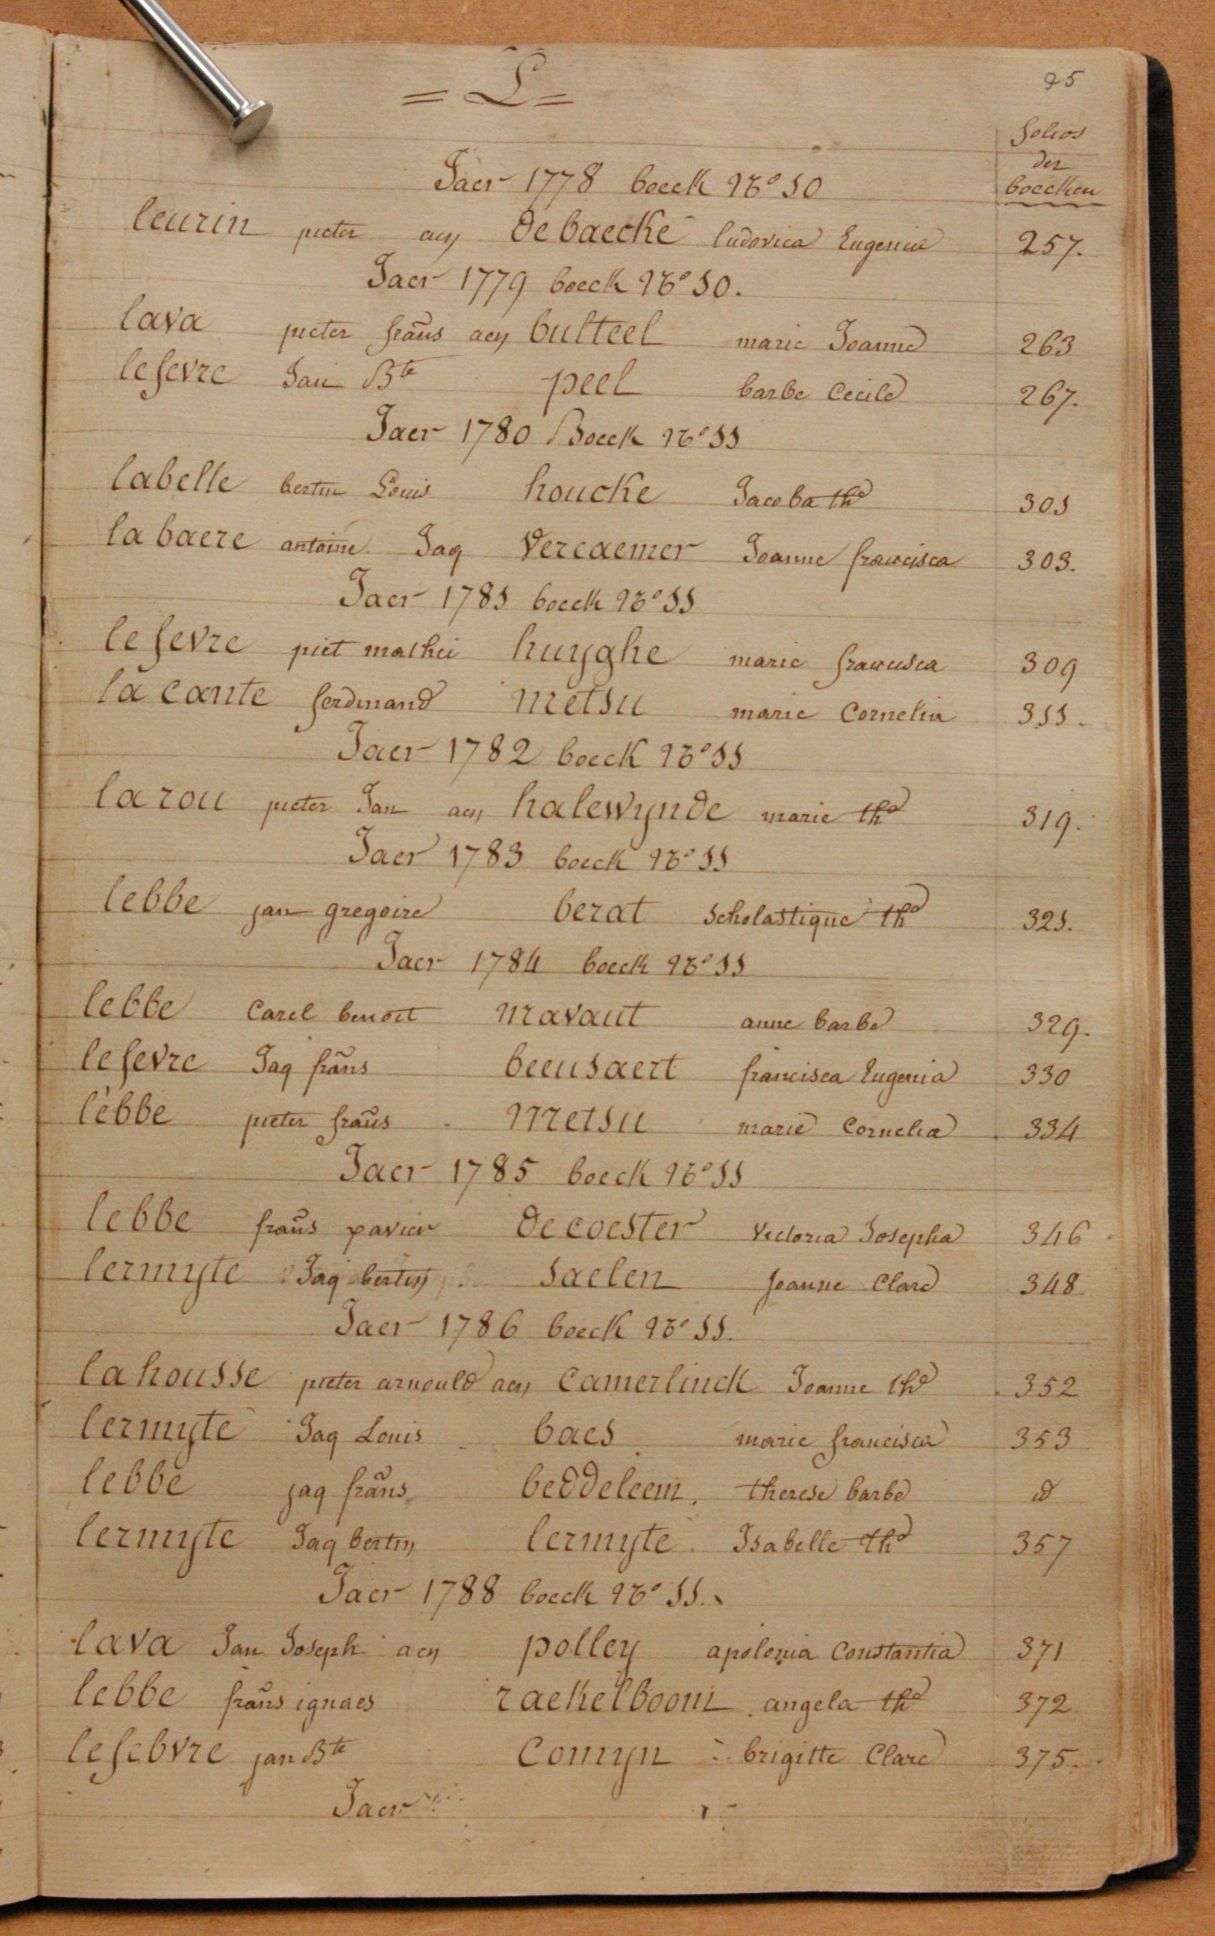 = L =
25
folios
der
boecken
Jaer 1778 boeck No 10
leurin pieter aen debaecke ludovica Eugenie 257.
Jaer 1779 boeck No 10.
lava pieter frans aen bulteel marie Joanne 263
lefevre Jan Bte peel barbe Cecile 267.
Jaer 1780 Boeck No 11
labelle bertin Louis houcke Jacoba the 301
labaere antoine Jaq vercaemer Joanne francisca 303.
Jaer 1781 boeck No 11
lefevre piet mathei huyghe marie francisca 309
la cante ferdinand metsu marie Cornelia 311.
Jaer 1782 boeck No 11
larou pieter Jan aen halewynde marie the 319.
Jaer 1783 boeck No 11
lebbe jan gregoire berat scholastique the 321.
Jaer 1784 boeck No 11
lebbe Carel benoit mavaut anne barbe 329.
lefevre Jaq frans beeusaert francisca Eugenia 330
lebbe pieter frans metsu marie Cornelia 334
Jaer 1785 boeck No 11
lebbe frans xavier decoester victoria Josepha 346
lermyte Jaq bertin saelen Joanne Clare 348
Jaer 1786 boeck No 11.
lahousse pieter arnould aen Camerlinck Joanne the 352
lermyte Jaq Louis baes marie francisca 353
lebbe jaq frans beddeleem. therese barbe id
lermyte Jaq bertin lermyte Isabelle the 357
Jaer 1788 boeck No 11.
lava Jan Joseph aen polley apolonia Constantia 371
lebbe frans ignaes raekelboom angela the 372
lefebvre jan Bte Comyn brigitte Clare 375.
Jaer